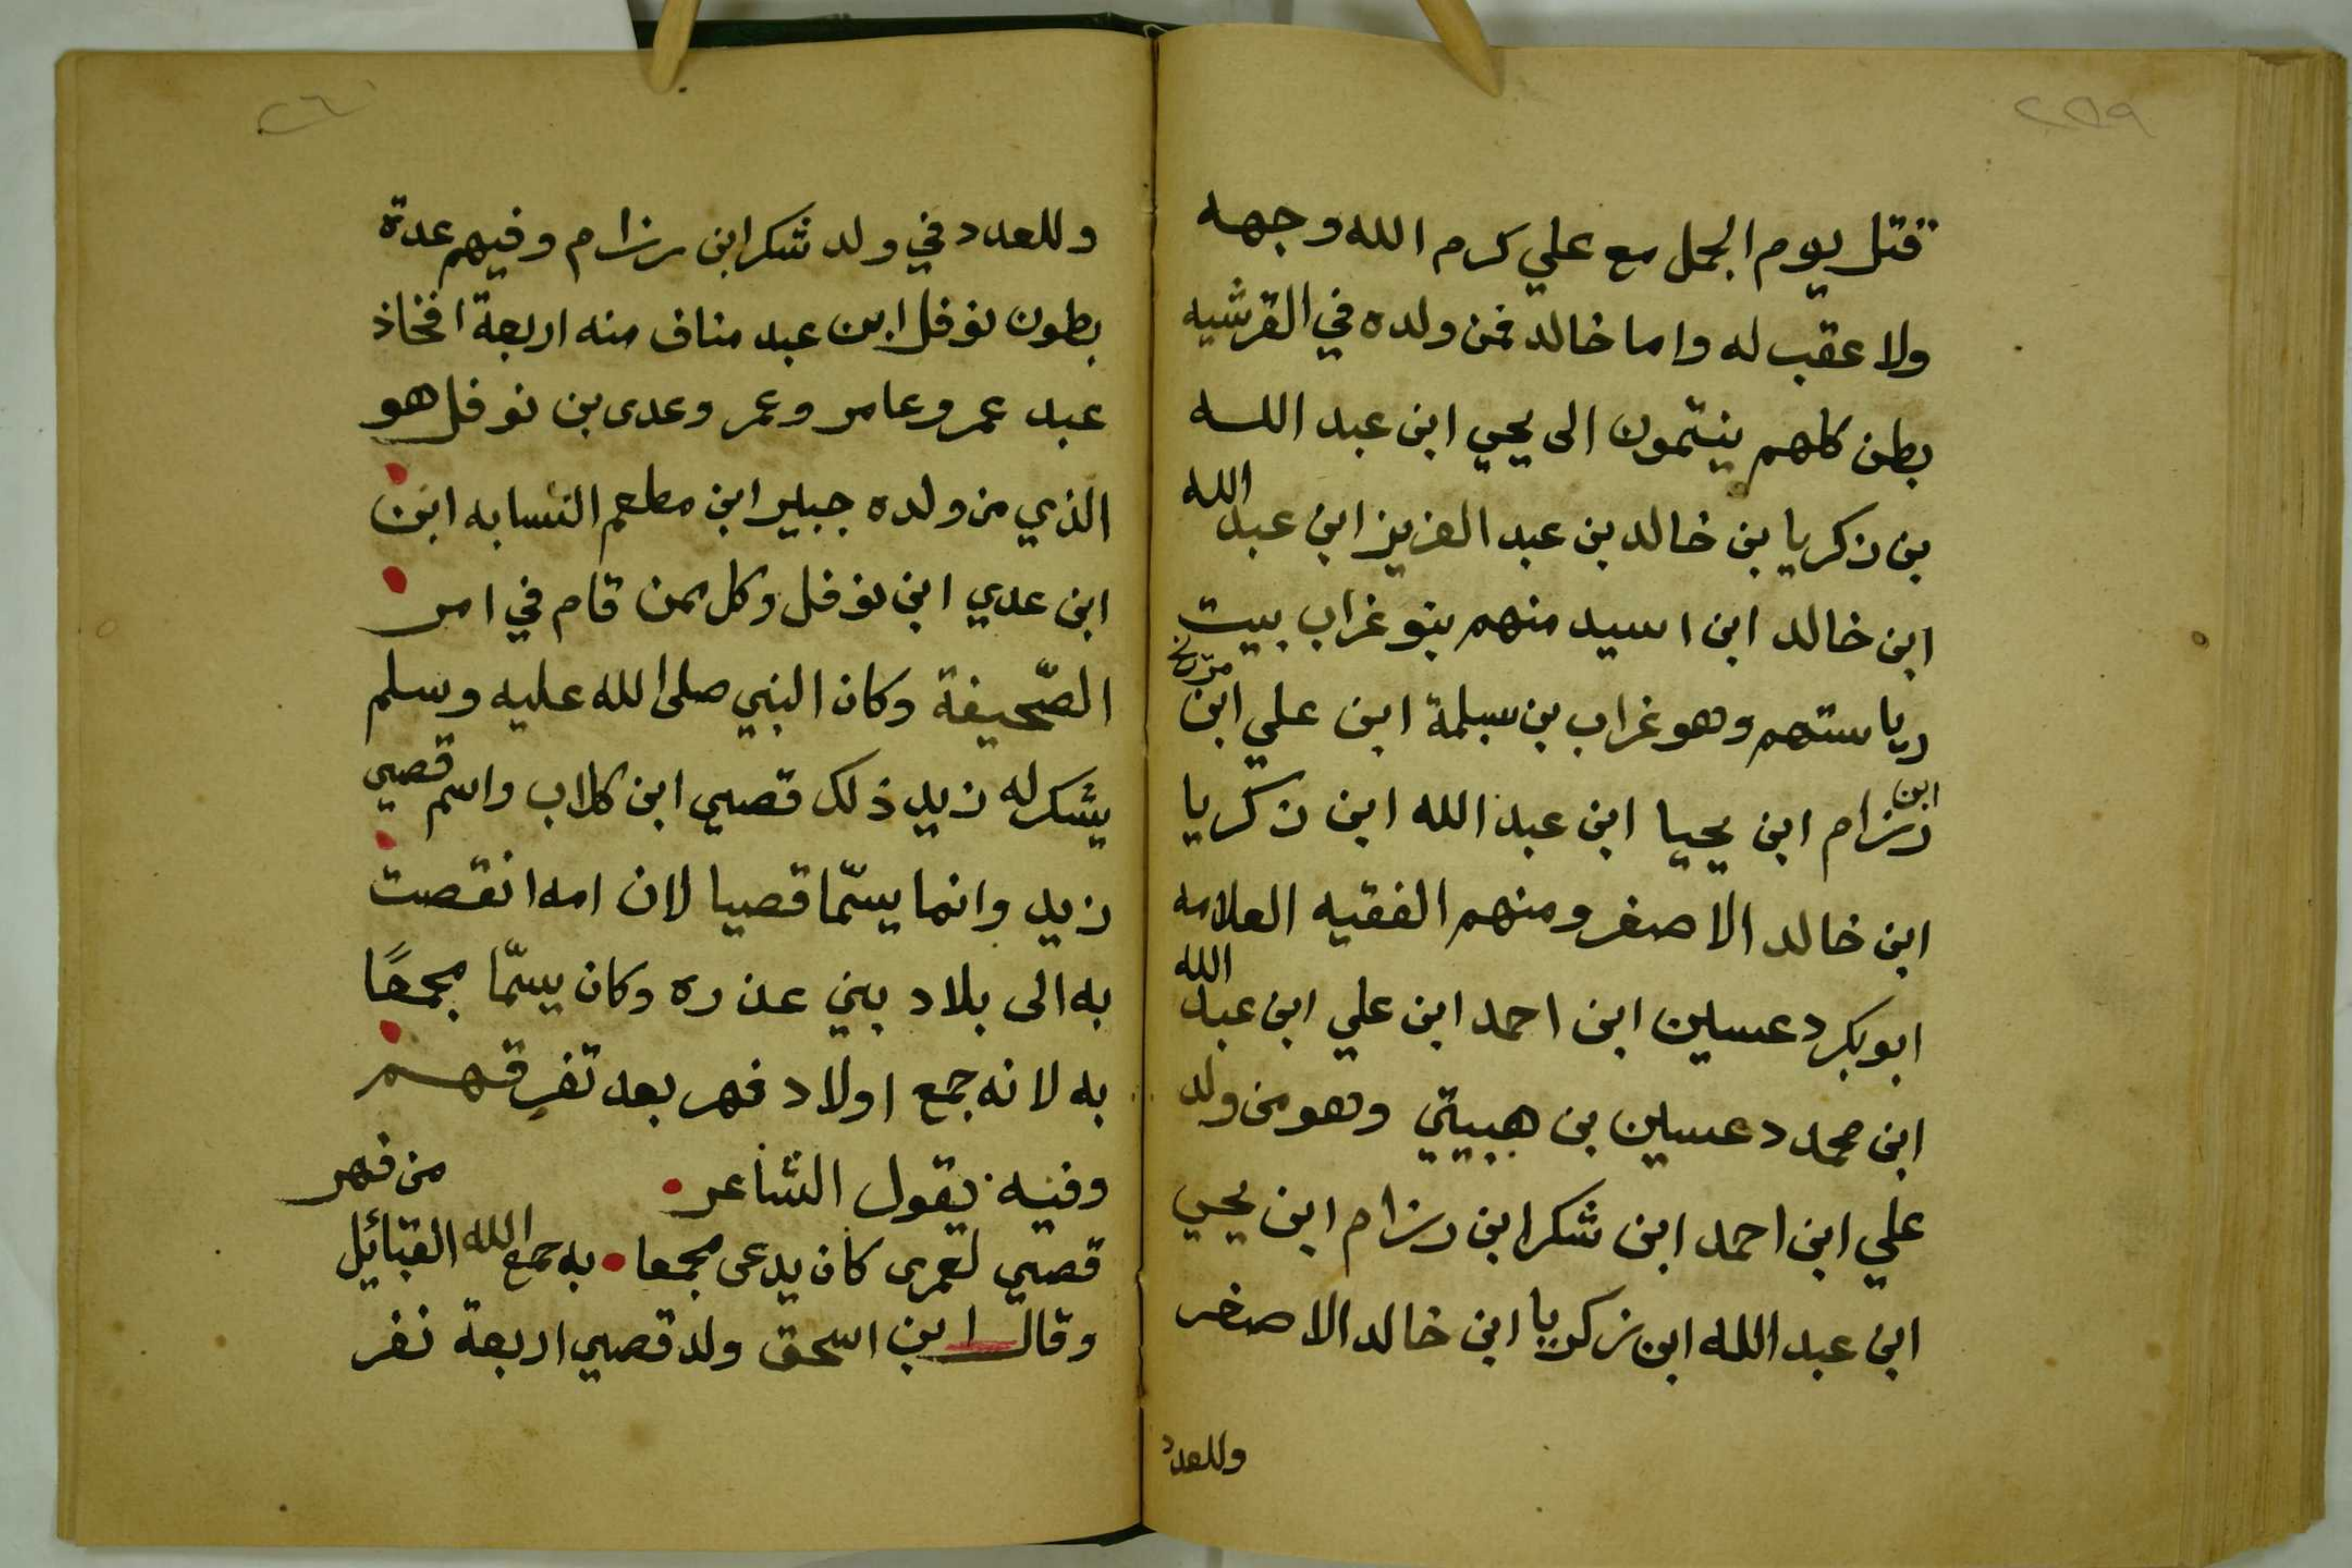 ٢٥٩
فتل يوم الجمل مع علي كرم الله وجهه
ولا عقب له واما خالد فمن ولده في القرشيه
بطن كلهم ينتمون الى يحيي ابن عبد الله
بن زكريا بن خالد بن عبد العزيز ابن عبد الله
ابن خالد ابن اسيد منهم بنو غراب بيت
رياستهم وهو غراب بن سلمة ابن علي ابن
ابن رزام ابن يحيا ابن عبد الله ابن زكريا
ابن خالد الاصغر ومنهم الفقيه العلامه
ابو بكر دعسين ابن احمد ابن علي ابن عبد الله
ابن محمد دعسين بن هبيتي وهو من ولد
علي ابن احمد ابن شكر ابن رزام ابن يحيي
ابن عبد الله ابن زكريا ابن خالد الاصغر
وللعدد
٢٦٠
وللعدد في ولد شكر ابن رزام وفيهم عدة
بطون نوفل ابن عبد مناف منه اربعة افخاذ
عبد عمرو عامر وعمر وعدى بن نوفل هو
الذي من ولده جبير ابن مطعم النسابه ابن
ابن عدي ابن نوفل وكل ممن قام في امر
الصّحيفة وكان النبي صلى الله عليه وسلم
يشكر له زيد ذلك قصي ابن كلاب واسم قصي
زيد وانما يسمّا قصيا لان امه انقصت
به الى بلاد بني عذره وكان يسمّا مجمعًا
به لانه جمع اولاد فهر بعد تفرقهم
وفيه يقول الشاعر
قصي لعمرى كان يدعى مجمعا به جمع الله القبائل من فهر
وقال ابن اسحق ولد قصي اربعة نفر